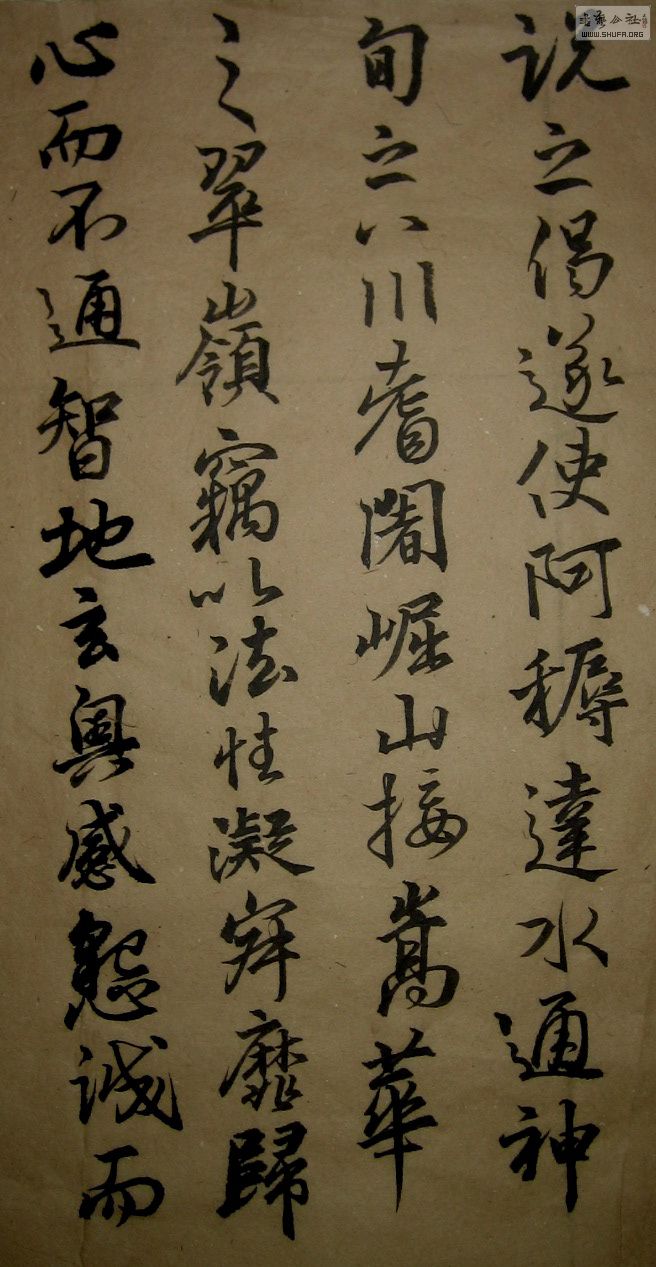 説之偈遂使阿耨達水通神
旬之八川耆闍崛山接嵩華
之翠嶺竊以法性凝寂靡歸
心而不通智地玄奧感懇誠而
WWW.SHUFA.ORG